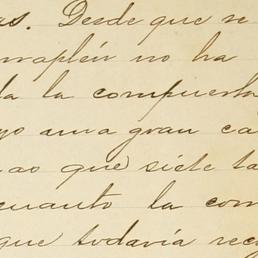 as. Desde que se
rraplén no ha
da la compuerta
yo una gran ca
ao que siete ta
cuanto la com
que todavía rec